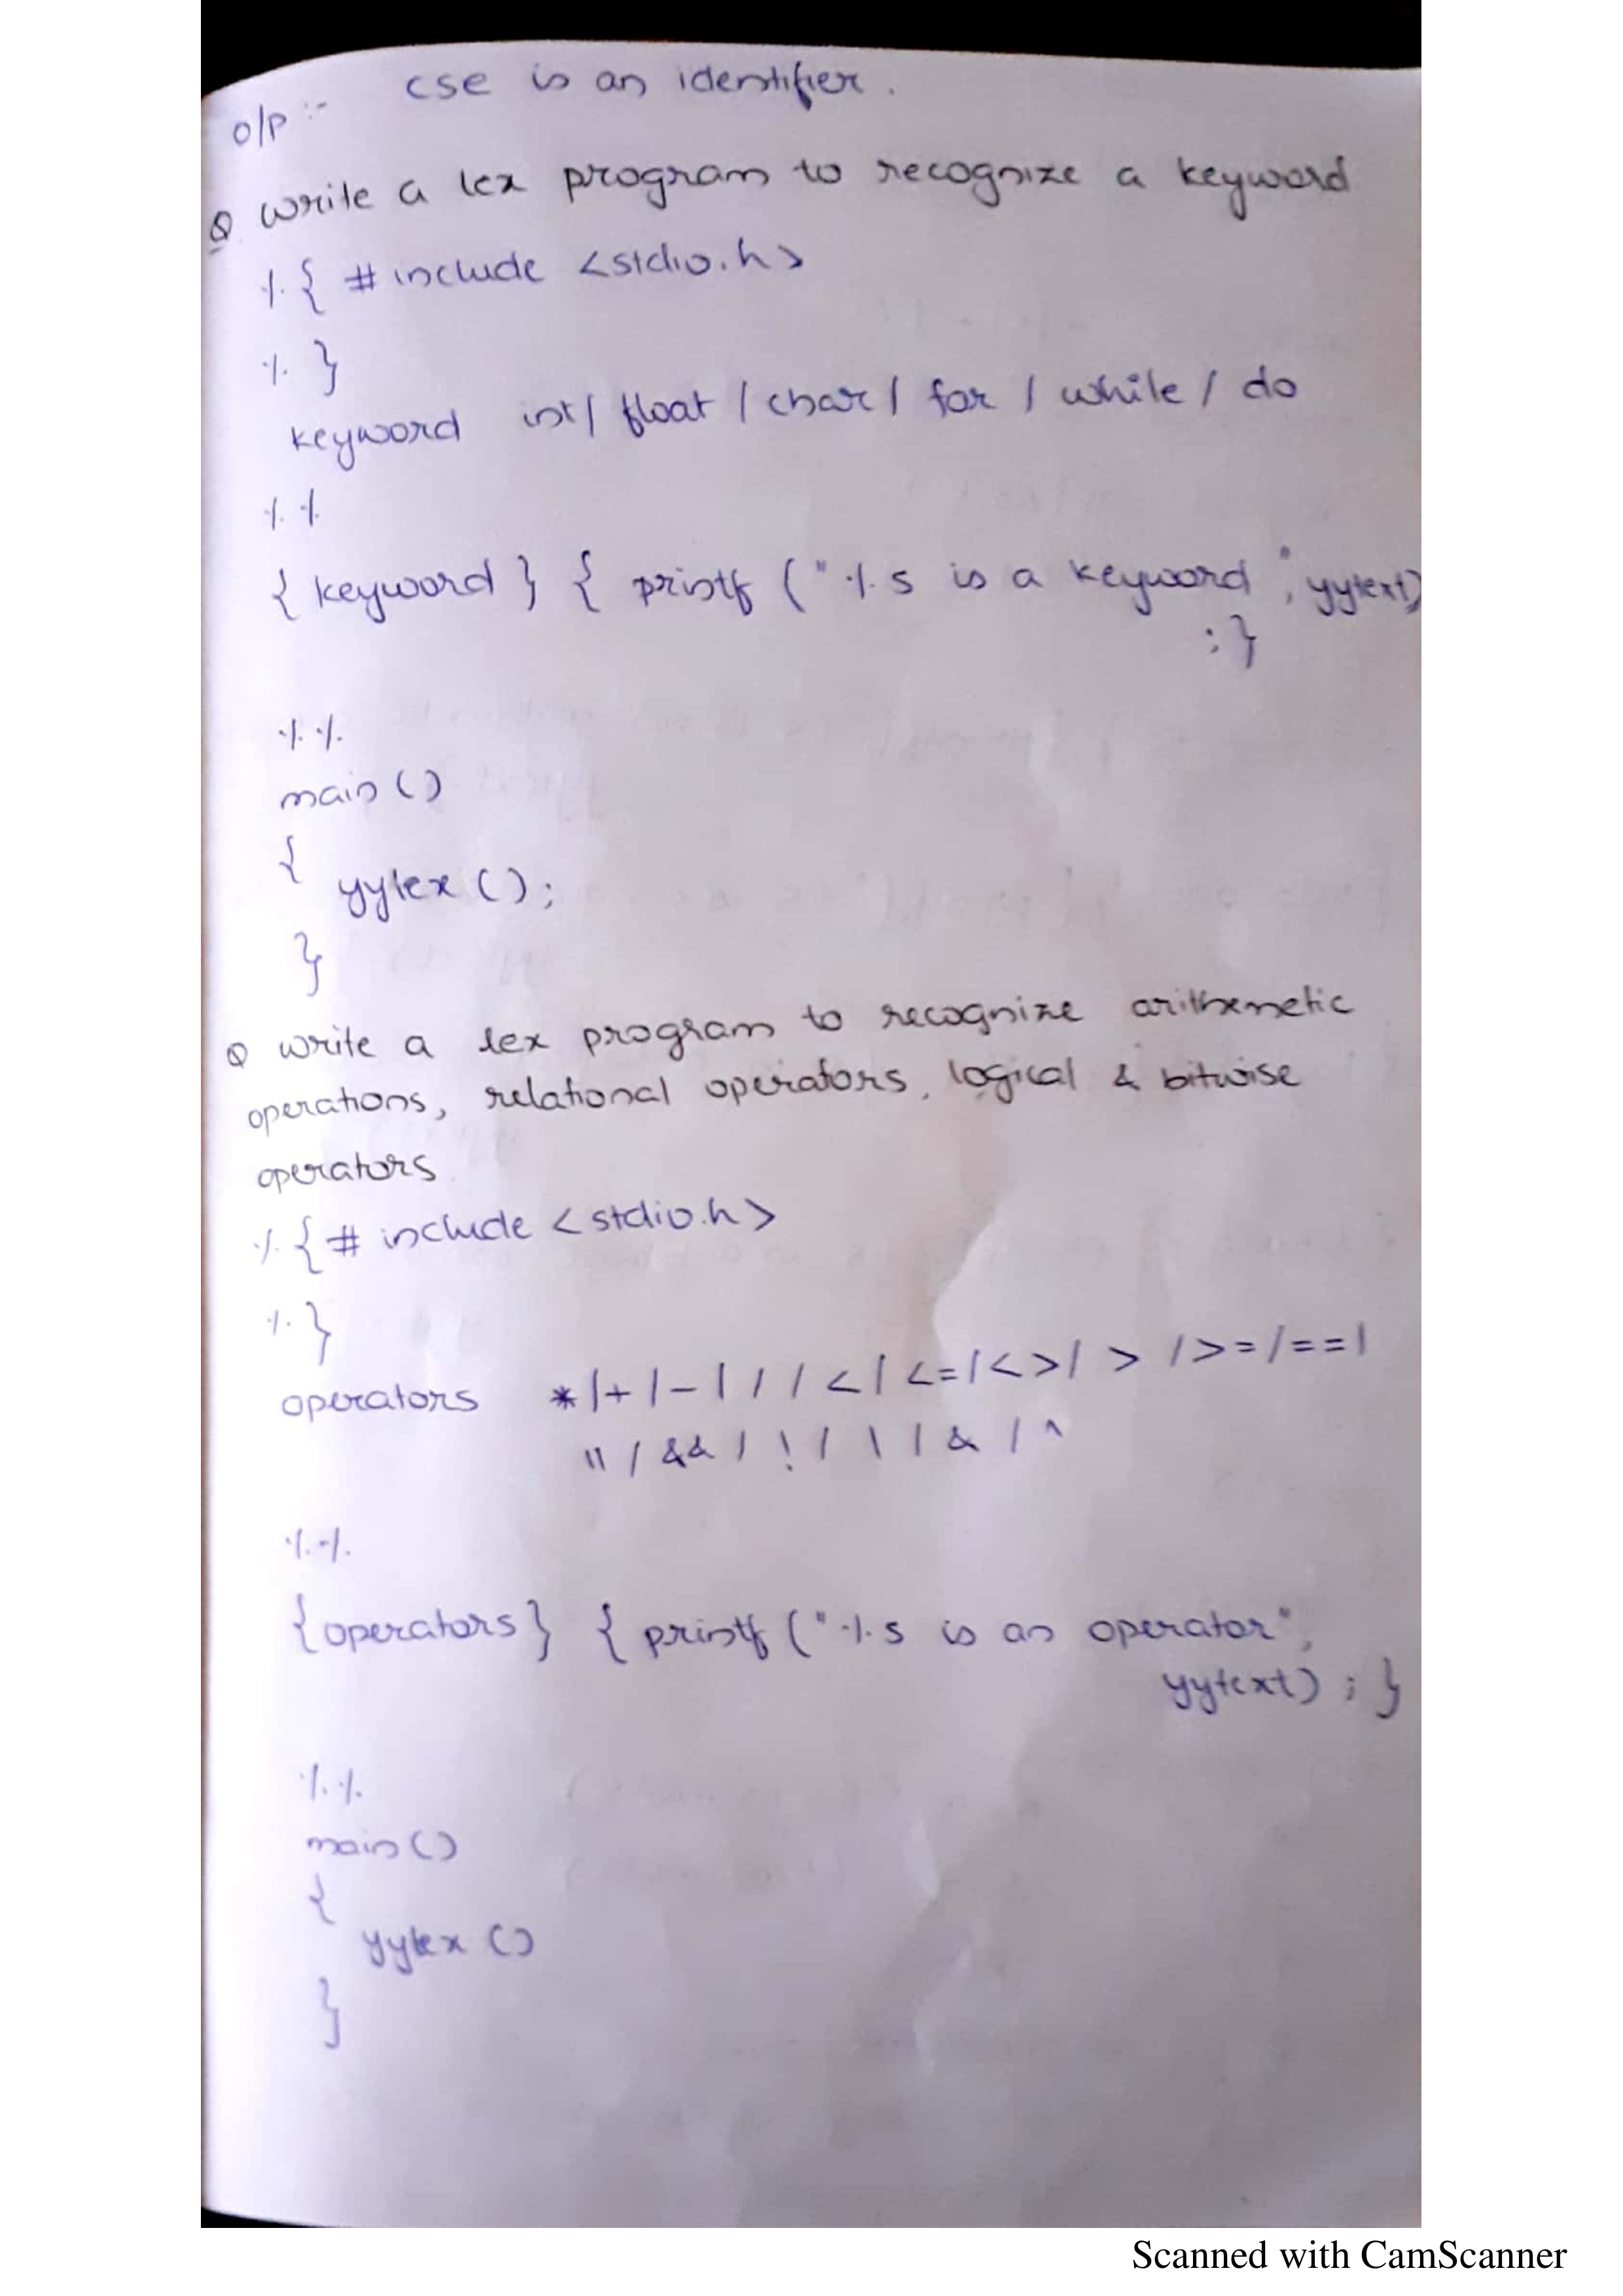 cse is an identifier.
O/P :-
Q Write a lex program to recognize a keyword
%{ # include <stdio.h>
%}
keyword int/ float / char / for / while / do
%%
{ keyword } { printf ( "%s is a keyword", yytext)
;}
%%
main ()
{
yylex ();
}
Q write a lex program to recognize arithemetic
operations, relational operators, logical & bitwise
operators
%{ # include <stdio.h>
%}
operators * |+ | - | / / < | <= |<>| > />= /== |
|| / && / ! / \ | & / ^
%%
{operators} { printf ("%s is an operator",
yytext) ; }
%%
main ()
{
yylex ()
}
Scanned with CamScanner